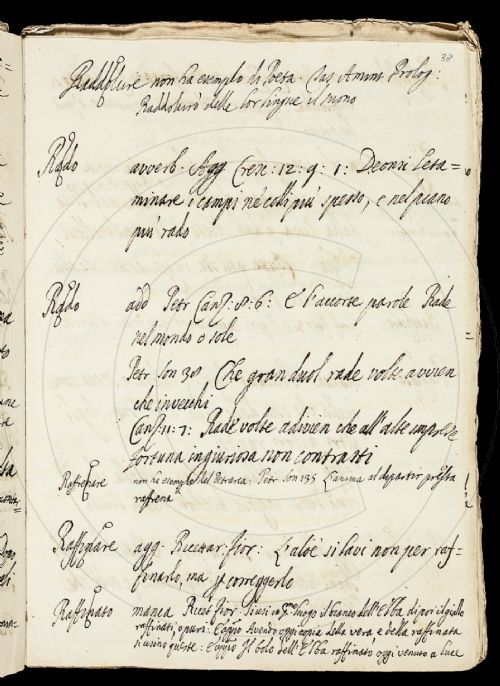 38
Raddolcire non ha esempio di Poeta. Tas Amint Prolog:
Raddolcirò delle lor lingue il suono
Rado avverb. Agg Cresc: 12: 9: 1: Deonsi Leta=
minare i campi ne' colli più spesso, e nel piano
più rado
Rado add Petr Canz: 8: 6: E l'accorte parole Rade
nel mondo o sole
Petr son 38 Che gran duol rade volte avvien
che invecchi
Canz: 11: 7: Rade volte adivien che all'alte imprese
fortuna ingiuriosa non contrasti
Raffrenare non ha esempio del Petrarca. Petr son 135 L'anima al dipartir presta
raffrena
Raffinare agg. Ricettar: fior: L'aloè si lavi non per raf=
finarlo, ma p correggerlo
Raffinato manca Ricet fior luogo il bianco dell'Elba di poi il giallo
raffinati o puri: E appo Avendo oggi copia della vera e della raffinata
si usino queste: E appo Il bolo dell'Elba raffinato oggi venuto a luce